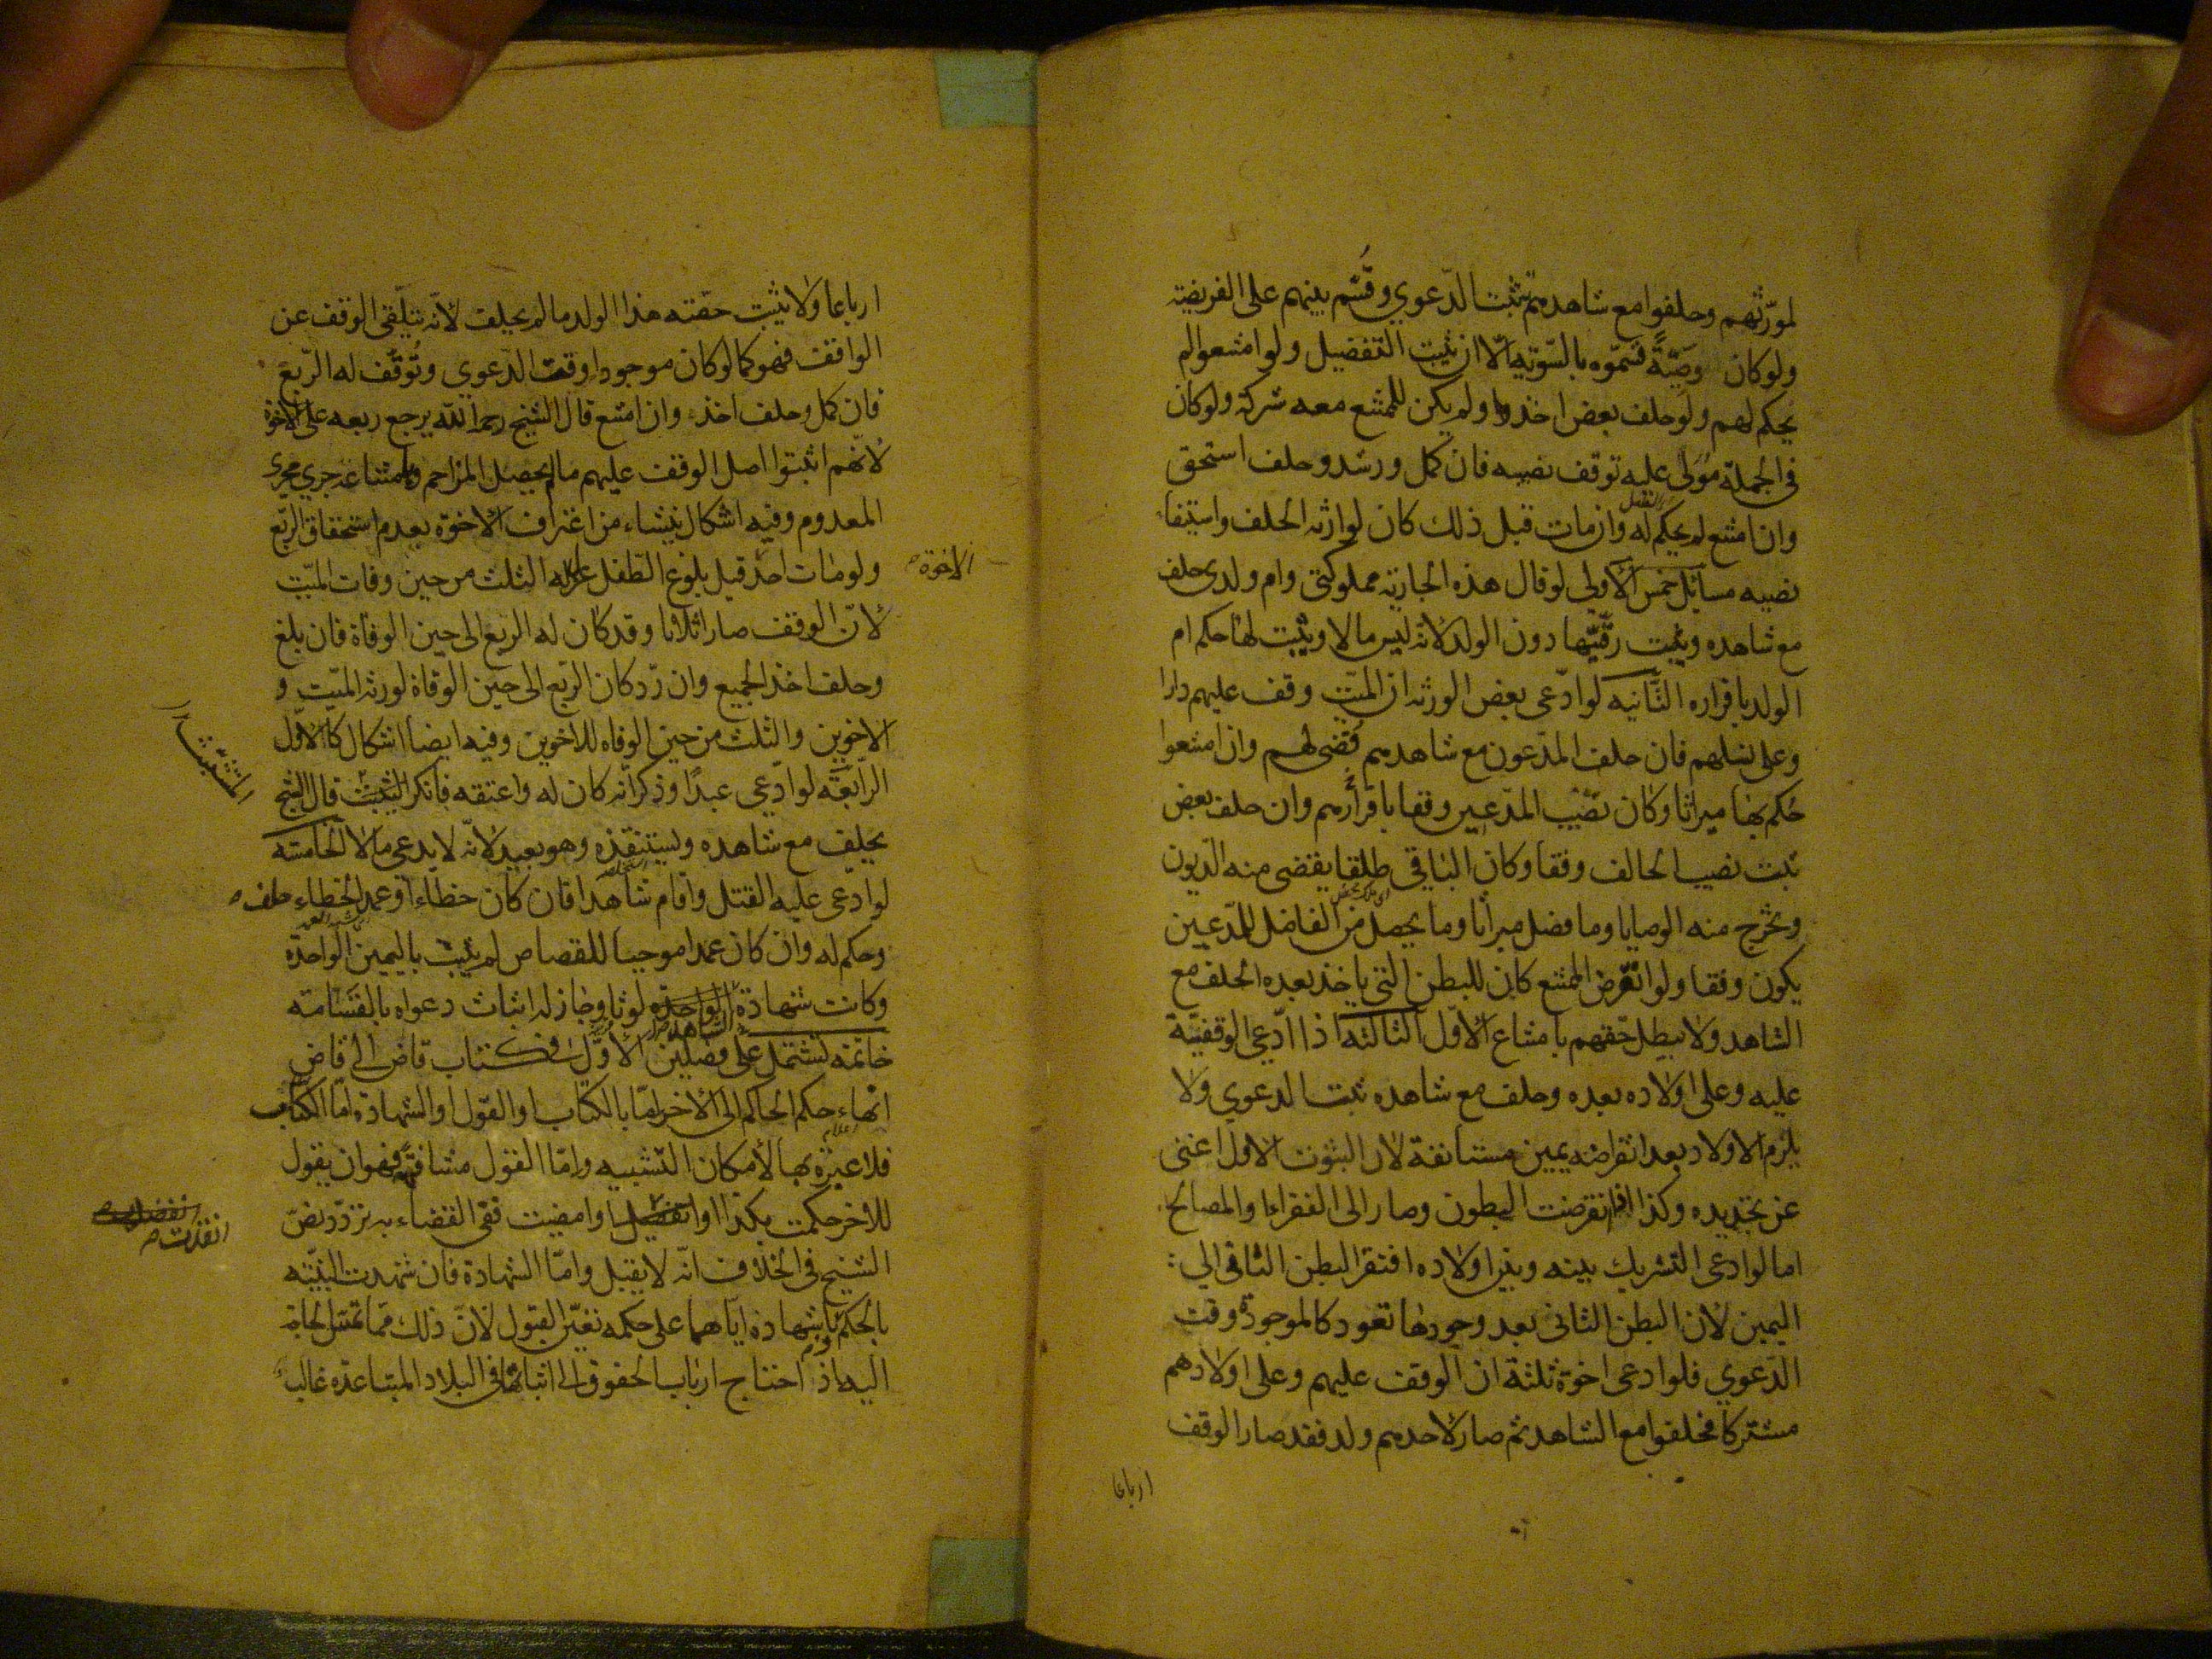 لمورّثهم وحلفوا مع شاهدهم تثبت الدّعوي وقُسّم بينهم على الفريضة
ولو كان وصيّةً قسموه بالسّويّة الّا ان يثبت التفضيل ولو امتنعوا لم
يحكم لهم ولو حلف بعض اخذوا ولم يكن للممتنع معه شركة ولو كان
في الجملة مُولى عليه توقف نصيبه فان كمل ورشد وحلف استحق
وان امتنع لم يحكم له وان مات قبل ذلك كان لوارثه الحلف واستيفاء
نصيبه مسائل خمس الأولى لو قال هذه الجارية مملوكتي وام ولدي حلف
مع شاهده ويثبت رقّيّتها دون الولد لانه ليس مالا ويثبت لها حكم ام
الولد باقراره الثّانيه لو ادّعى بعض الورثه ان الميّت وقف عليهم دارا
وعلى نسلهم فان حلف المدّعون مع شاهدهم قُضى لهم وان امتنعوا
حُكم بها ميراثا وكان نصيب المدّعين وقفا باقرارهم وان حلف بعض
ثبت نصيب الحالف وقفا وكان الباقي طلقا يقضى منه الدّيون
وتخرج منه الوصايا وما فضل ميراثا وما يحصل من الفاضل للمدّعين
يكون وقفا ولو انقرض الممتنع كان للبطن التي ياخذ بعده الحلف مع
الشاهد ولا يبطل حقهم بامتناع الأوّل الثالثه اذا ادّعى الوقفيّة
عليه وعلى اولاده بعده وحلف مع شاهده ثبت الدعوي ولا
يلزم الاولاد بعد انقراضه يمين مستانفة لان الثبوت الاول اغنى
عن تجديده وكذا اذا انقرضت البطون وصار الى الفقراء او المصالح
اما لو ادعى التشريك بينه وبين اولاده افتقر البطن الثاني الى
اليمين لان البطن الثاني بعد وجودها تعود كالموجودة وقت
الدّعوي فلو ادعى اخوة ثلثة ان الوقف عليهم وعلى اولادهم
مشتركا فحلفوا مع الشاهد ثم صار لاحدهم ولد فقد صار الوقف
ارباعا
ارباعا ولا يثبت حصّته هذا الولد ما لم يحلف لانّه يتلّقى الوقف عن
الواقف فهو كما لو كان موجودا وقت الدّعوي وتُوقف له الرّبع
فان كمل وحلف اخذ وان امتنع قال الشيخ رحمه الله يرجع ربعه على الاخوة
لانّهم اثبتوا اصل الوقف عليهم ما لم يحصل المزاحم وبامتناعه جري مجرى
المعدوم وفيه اشكال ينشاء من اعتراف الاخوة بعدم استحقاق الربع
ولو مات احد قبل بلوغ الطّفل عزل له الثلث من حين وفات الميّت
الاخوة
لانّ الوقف صار اثلاثا وقد كان له الربع الى حين الوفاة فان بلغ
وحلف اخذ الجميع وان ردّ كان الربع الى حين الوفاة لورثه الميّت و
الاخوين والثلث من حين الوفاه للاخوين وفيه ايضا اشكال كالاوّل
الرّابعة لو ادّعى عبدًا وذكر انّه كان له واعتقه فانكر قال الشيخ
المتشبّث
يحلف مع شاهده ويستنقذه وهو بعيد لانّه لا يدعى مالا الخامسه
لو ادّعى عليه القتل واقام شاهدا فان كان خطاءا او عمد الخطاء حلف
وحكم له وان كان عمدا موجبا للقصاص لم يثبت باليمين الواحدة
وكانت شهادة الواحده لوثا وجاز له اثبات دعواه بالقسامة
الشاهد
خاتمه تشتمل على فصلين الأوّل فى كتاب قاض الى قاض
انهاء حكم الحاكم الى الآخر امّا بالكتاب او القول او الشهادة امّا الكتاب
فلا عبرة بها لأمكان التشبيه وامّا القول مشافهة فهو ان يقول
للآخر حكمت بكذا او او امضيت ففى القضاء به تردّد نصّ
انفذت
الشيخ في الخلاف انّه لا يقبل وامّا الشهادة فان شهدت البيّنه
بالحكم وباشهاده ايّاهما على حكمه تعيّن القبول لانّ ذلك ممّا تمسّ الحاجة
اليه اذ احتاج ارباب الحقوق الى اثباتها في البلاد المتباعدة غالبا